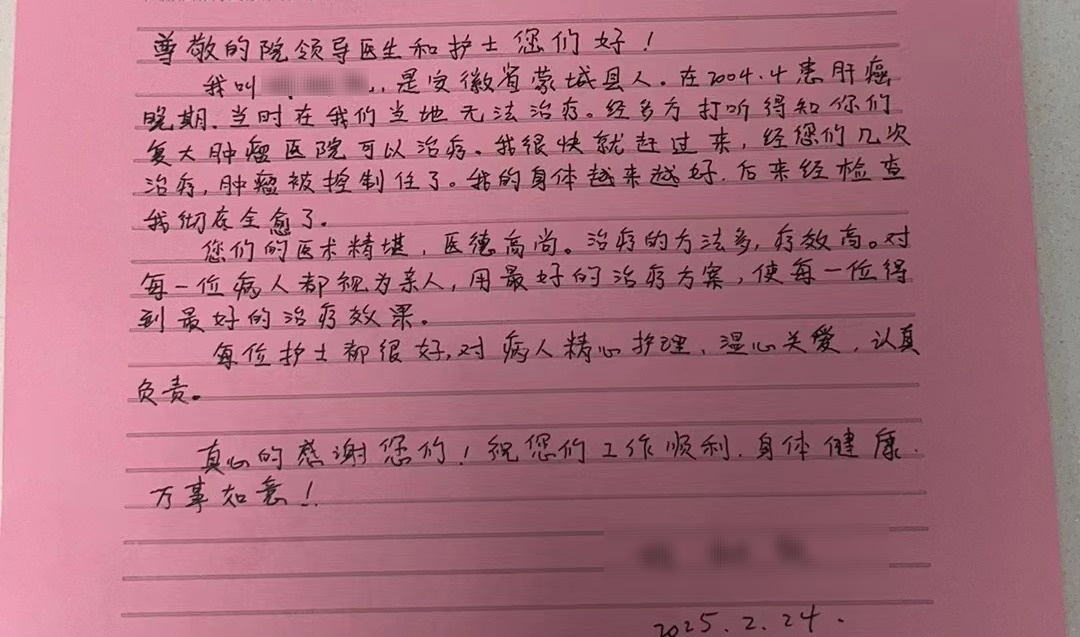 尊敬的院领导医生和护士您们好！
我叫 是安徽省蒙城县人。在2004.4患肝癌
晚期、当时在我们当地无法治疗。经多方打听得知你们
复大肿瘤医院可以治疗。我很快就赶过来，经您们几次
治疗，肿瘤被控制住了。我的身体越来越好、后来经检查
我彻底全愈了。
您们的医术精堪，医德高尚。治疗的方法多，疗效高。对
每一位病人都视为亲人，用最好的治疗方案，使每一位得
到最好的治疗效果。
每位护士都很好，对病人精心护理、温心关爱、认真
负责。
真心的感谢您们！祝您们工作顺利、身体健康、
万事如意！
2025.2.24.